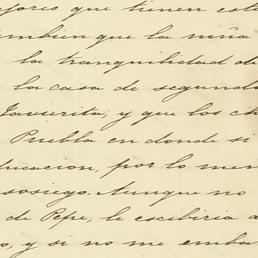 ejores que tienen este
tambien que la niña
la tranquilidad de
la casa de segund
Javierita; y que los ch
Puebla en donde si
ducacion, por lo men
sosiego. Aunque no
de Pepe, le escribiria a
o, y si no me emba